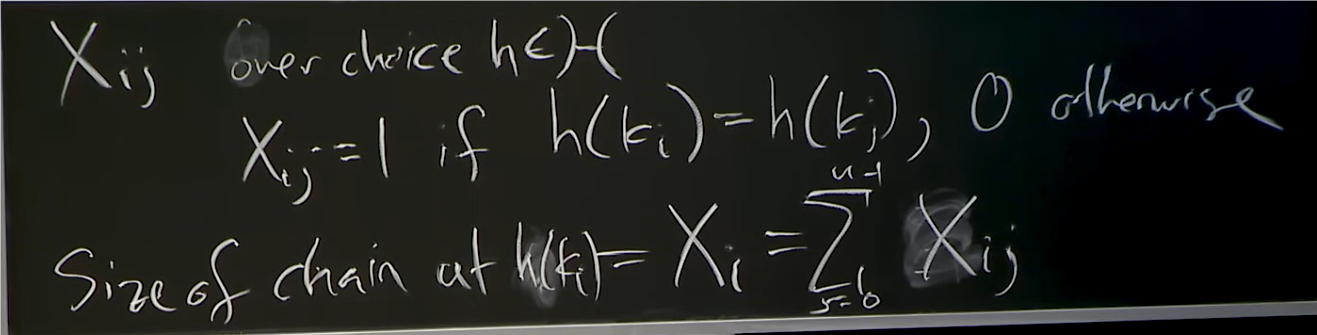 X_ij over choice h∈H
X_ij = 1 if h(k_i) = h(k_j), 0 otherwise
Size of chain at h(k_i) = X_i = ∑_{j=0}^{u-1} X_ij